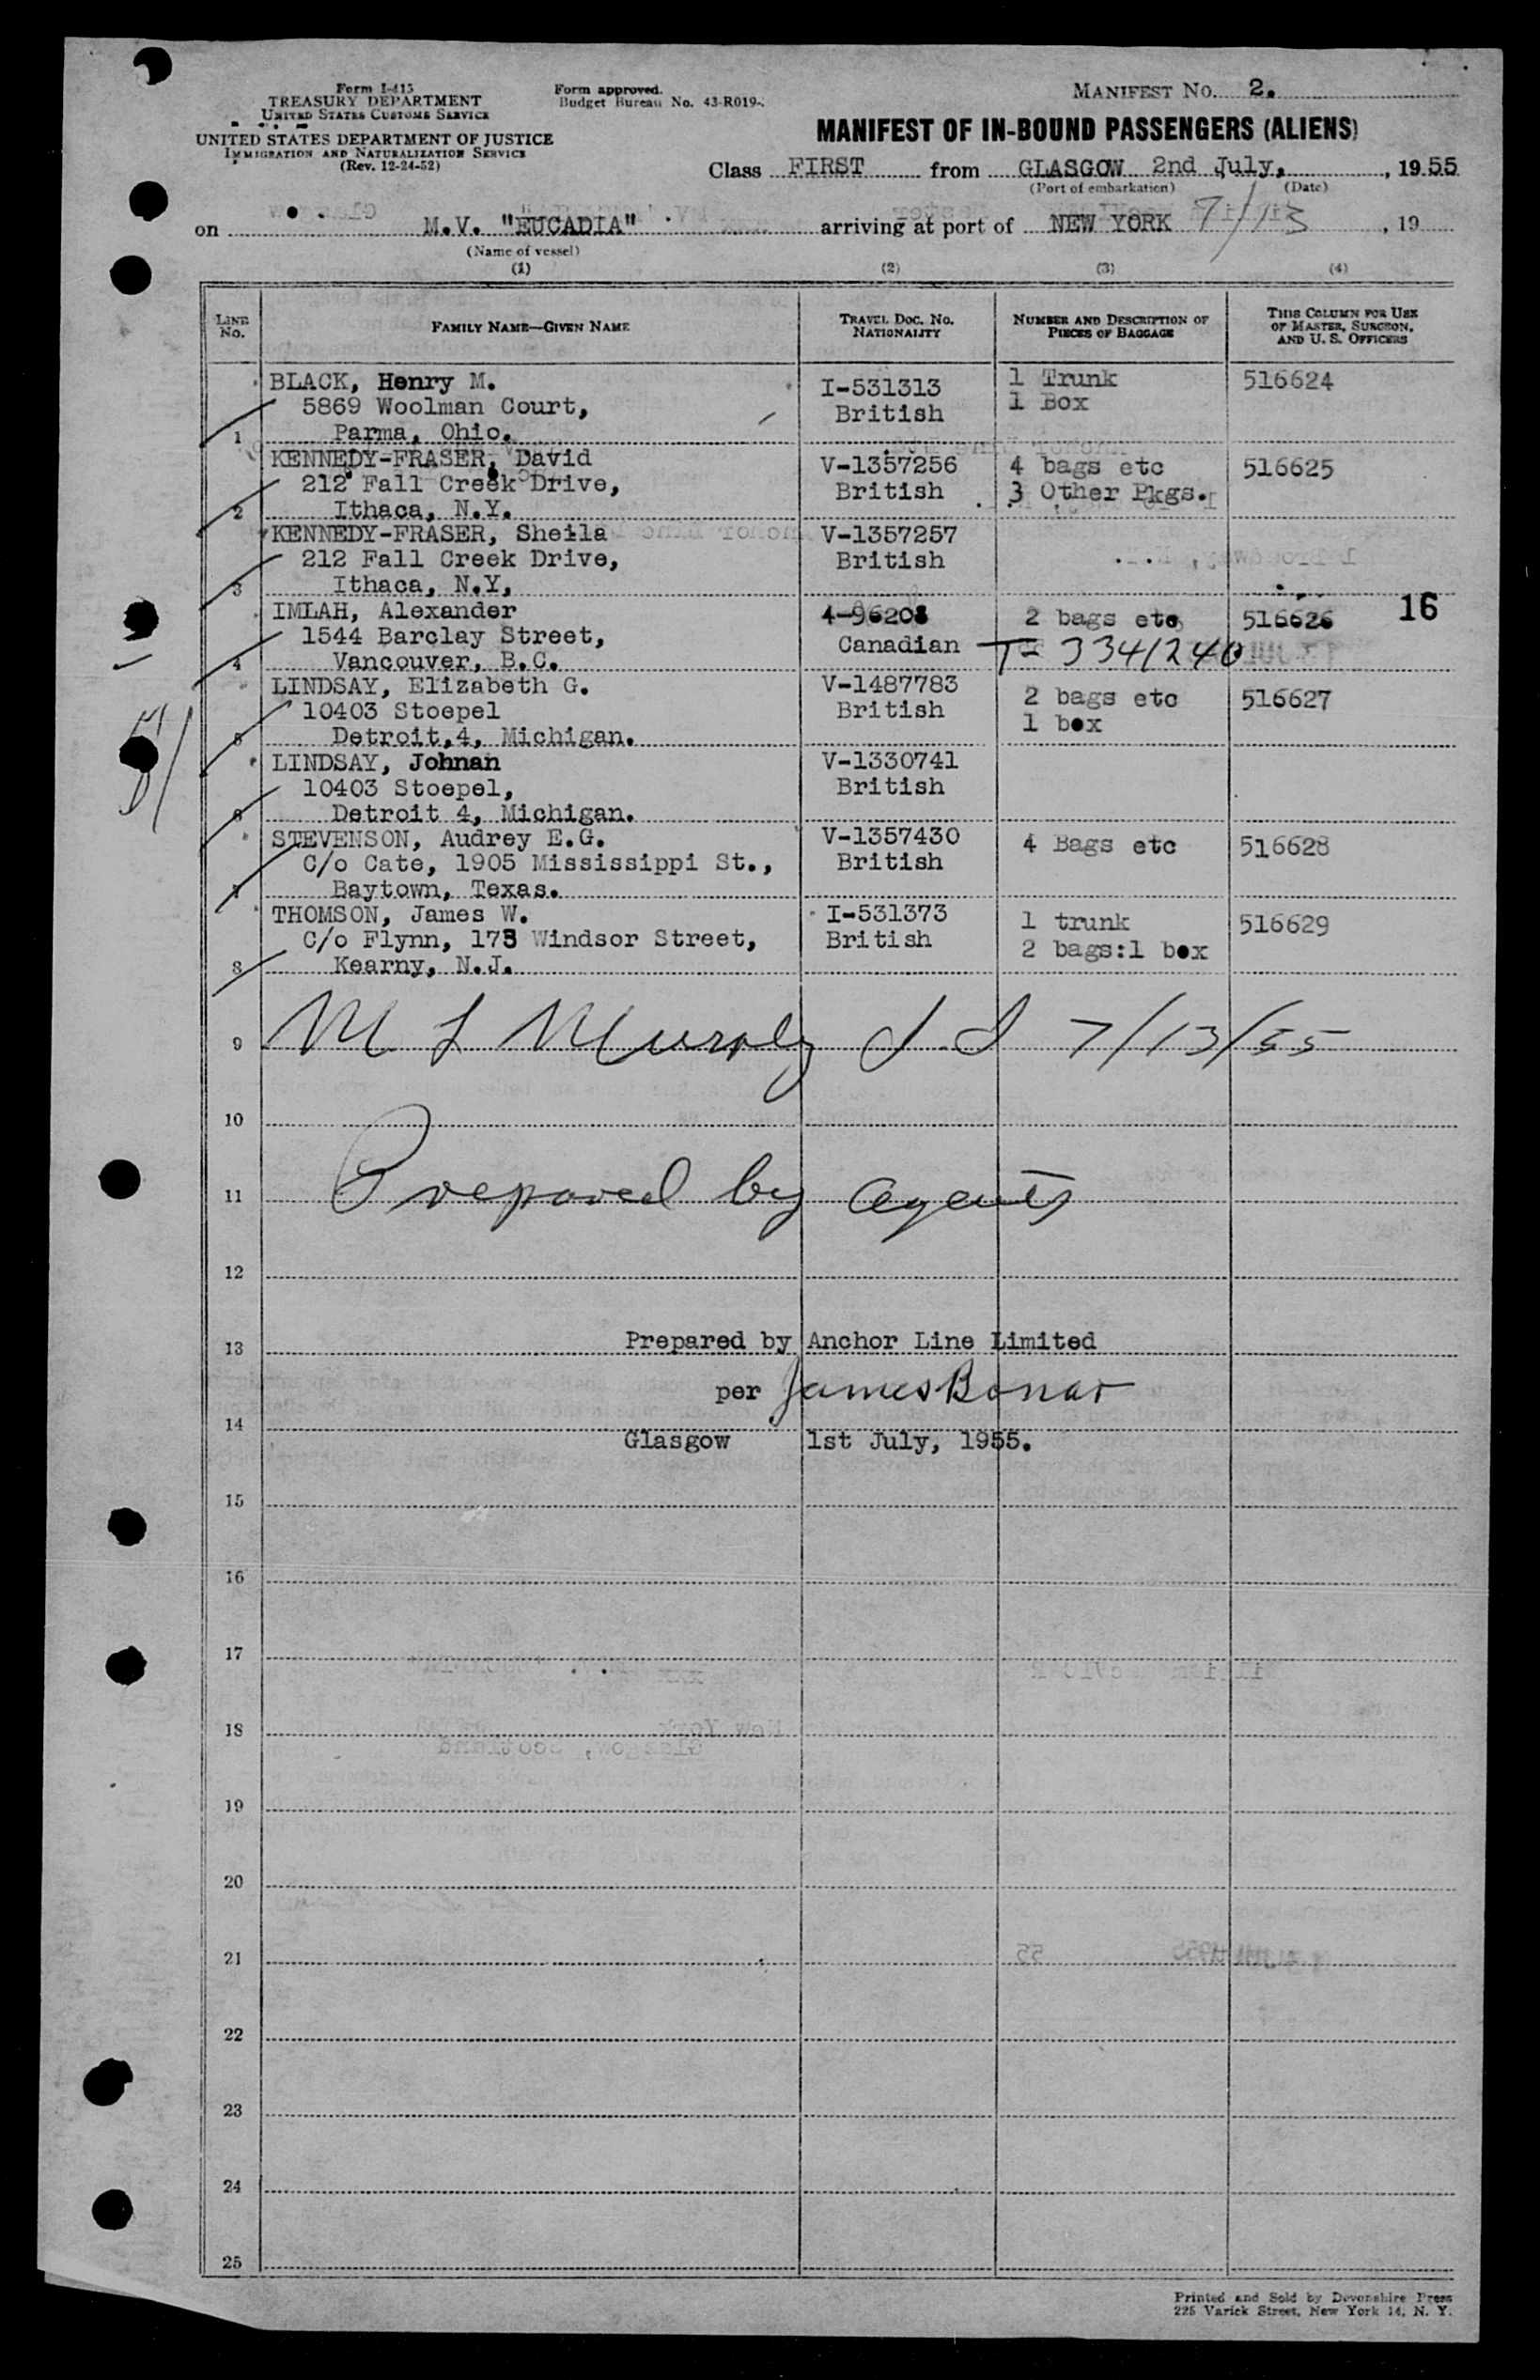 Form I-415
TREASURY DEPARTMENT
UNITED STATES CUSTOMS SERVICE
UNITED STATES DEPARTMENT OF JUSTICE
IMMIGRATION AND NATURALIZATION SERVICE
(Rev. 12-24-52)
Form approved.
Budget Bureau No. 43-R019-
MANIFEST NO. 2.
MANIFEST OF IN-BOUND PASSENGERS (ALIENS)
Class FIRST from GLASGOW 2nd July, , 1955
(Port of embarkation) (Date)
on M.V. "EUCADIA" arriving at port of NEW YORK 7/13 , 19
(Name of vessel)
(1) (2) (3) (4)
LINE No. FAMILY NAME—GIVEN NAME TRAVEL DOC. NO. NATIONALITY NUMBER AND DESCRIPTION OF PIECES OF BAGGAGE THIS COLUMN FOR USE OF MASTER, SURGEON, AND U. S. OFFICERS
BLACK, Henry M. I-531313 1 Trunk 516624
5869 Woolman Court, British 1 Box
1 Parma, Ohio.
KENNEDY-FRASER, David V-1357256 4 bags etc 516625
212 Fall Creek Drive, British 3 Other Pkgs.
2 Ithaca, N.Y.
KENNEDY-FRASER, Sheila V-1357257
212 Fall Creek Drive, British
3 Ithaca, N.Y,
IMLAH, Alexander 4-96208 2 bags etc 516626 16
1544 Barclay Street, Canadian T- 3341240
4 Vancouver, B.C.
LINDSAY, Elizabeth G. V-1487783 2 bags etc 516627
10403 Stoepel British 1 box
5 Detroit,4, Michigan.
LINDSAY, Johnan V-1330741
10403 Stoepel, British
6 Detroit 4, Michigan.
STEVENSON, Audrey E.G. V-1357430 4 Bags etc 516628
C/o Cate, 1905 Mississippi St., British
7 Baytown, Texas.
THOMSON, James W. I-531373 1 trunk 516629
C/o Flynn, 173 Windsor Street, British 2 bags:1 box
8 Kearny, N.J.
9 M L Murphy I.I 7/13/55
10
11 Prepared by agents
12
13 Prepared by Anchor Line Limited
per James Bonar
14
Glasgow 1st July, 1955.
15
16
17
18
19
20
21
22
23
24
25
Printed and Sold by Devonshire Press
225 Varick Street, New York 14, N. Y.